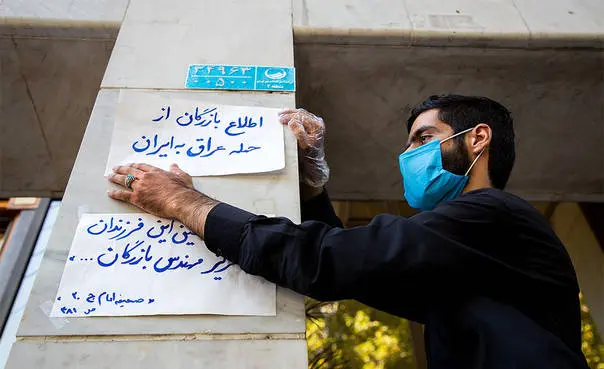 ۳۲۹۶۳
۰۰۵۰۰
منطقه ۲
اطلاع بازرگان از
حمله عراق به ایران
این فرزندان
مهندس بازرگان ...
صحیفه امام ج ۲۰
ص ۴۸۱